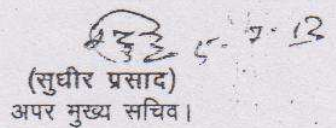 (सुधीर प्रसाद)
अपर मुख्य सचिव।